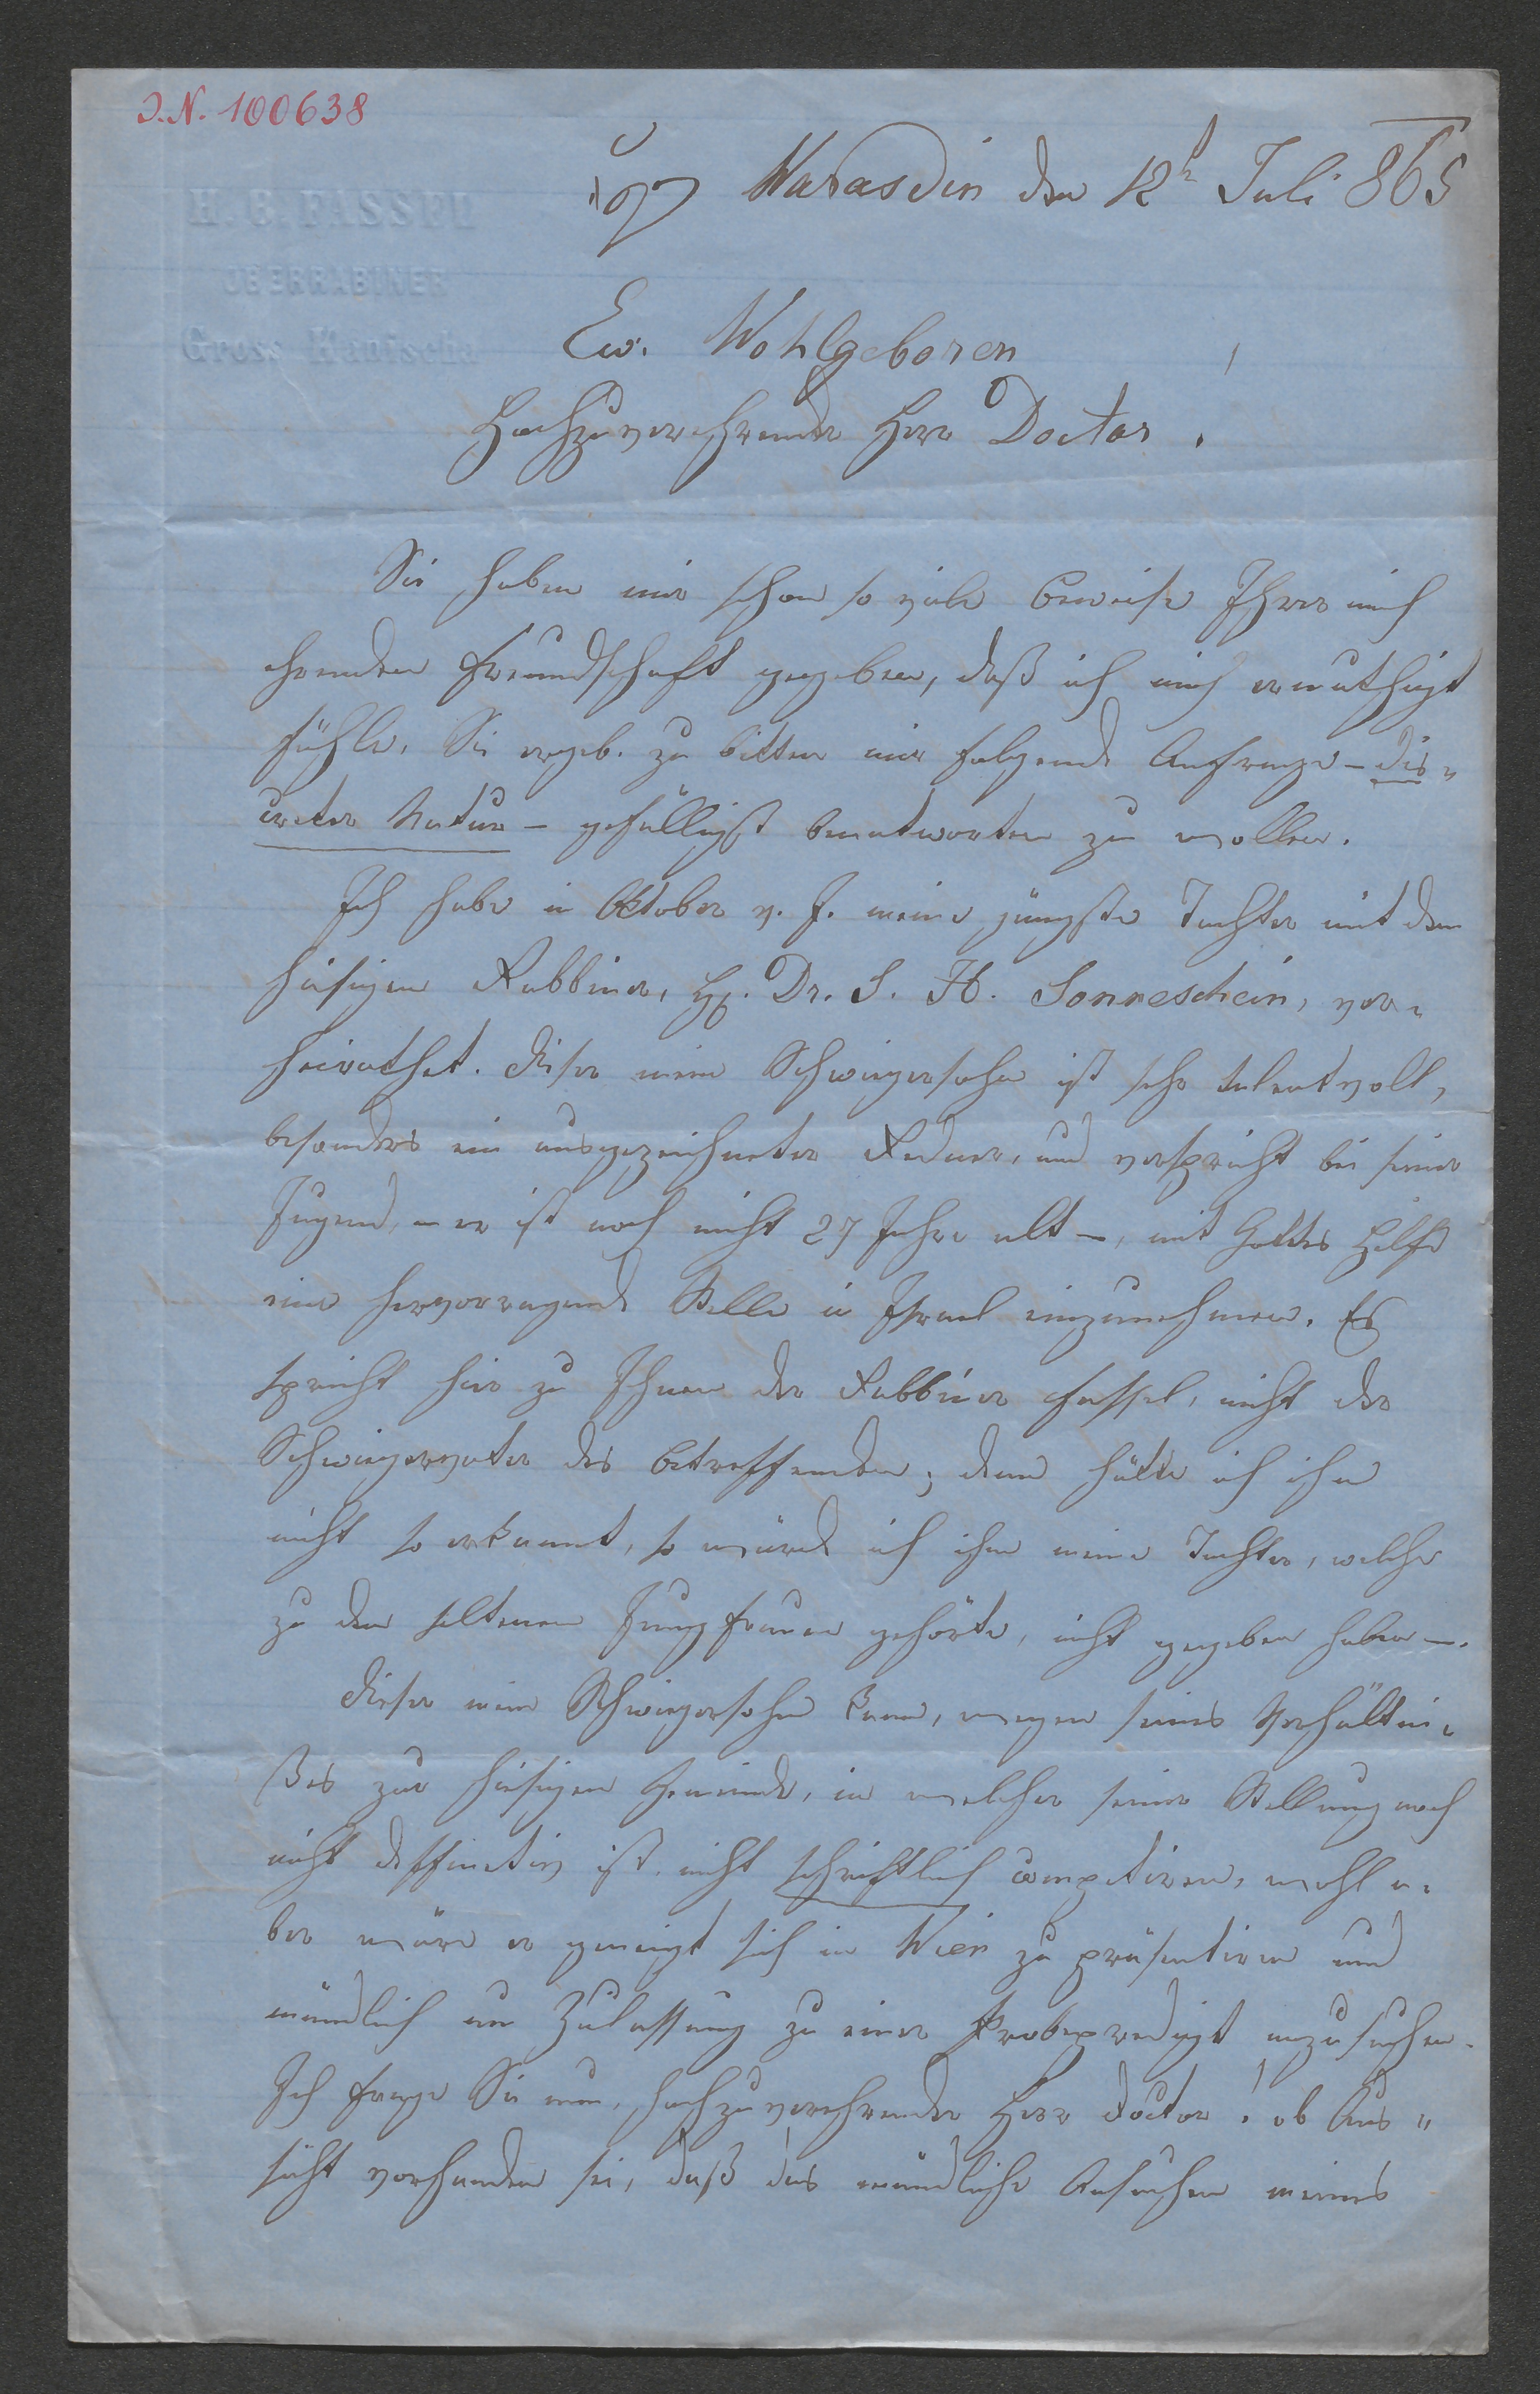 J.N. 100638
H. B. FASSEL
OBERRABINER
Gross Kanischa
Warasdin den 12t Juli 865
Ew. Wohlgeboren
Hochzuverehrender Herr Doctor!
Sie haben mir schon so viele Beweise Ihrer mich
ehrenden Freundschaft gegeben, daß ich mich ermuthigt
fühle, Sie ergeb. zu bitten mir folgende Anfrage – dis„
creter Natur – gefälligst beantworten zu wollen.
Ich habe in Oktober v. J. meine jüngste Tochter mit dem
hiesigen Rabbiner, H. Dr. S. H. Sonneschein, ver„
heirathet. Dieser mein Schwiegersohn ist sehr talentvoll,
besonders ein ausgezeichneter Redner, und verspricht bei seiner
Jugend, – er ist noch nicht 27 Jahre alt –, mit Gottes Hilfe
eine hervorragende Stelle in Israel einzunehmen. Es
spricht hier zu Ihnen der Rabbiner Fassel, nicht der
Schwiegervater des Betreffenden; denn hätte ich ihn
nicht so erkannt, so würde ich ihm meine Tochter, welche
zu den seltenen Jungfrauen gehörte, nicht gegeben haben –.
Dieser mein Schwiegersohn kann, wegen seines Verhältni„
ßes zur hiesigen Gemeinde, in welcher seine Stellung noch
nicht deffinetiv ist, nicht schriftlich competiren, wohl a„
ber wäre er geneigt sich in Wien zu präsentiren und
mündlich um Zulassung zu einer Probepredigt anzusuchen.
Ich frage Sie nun, hochzuverehrender Herr Doctor! ob Aus„
sicht vorhanden sei, daß das mündliche Ansuchen meines